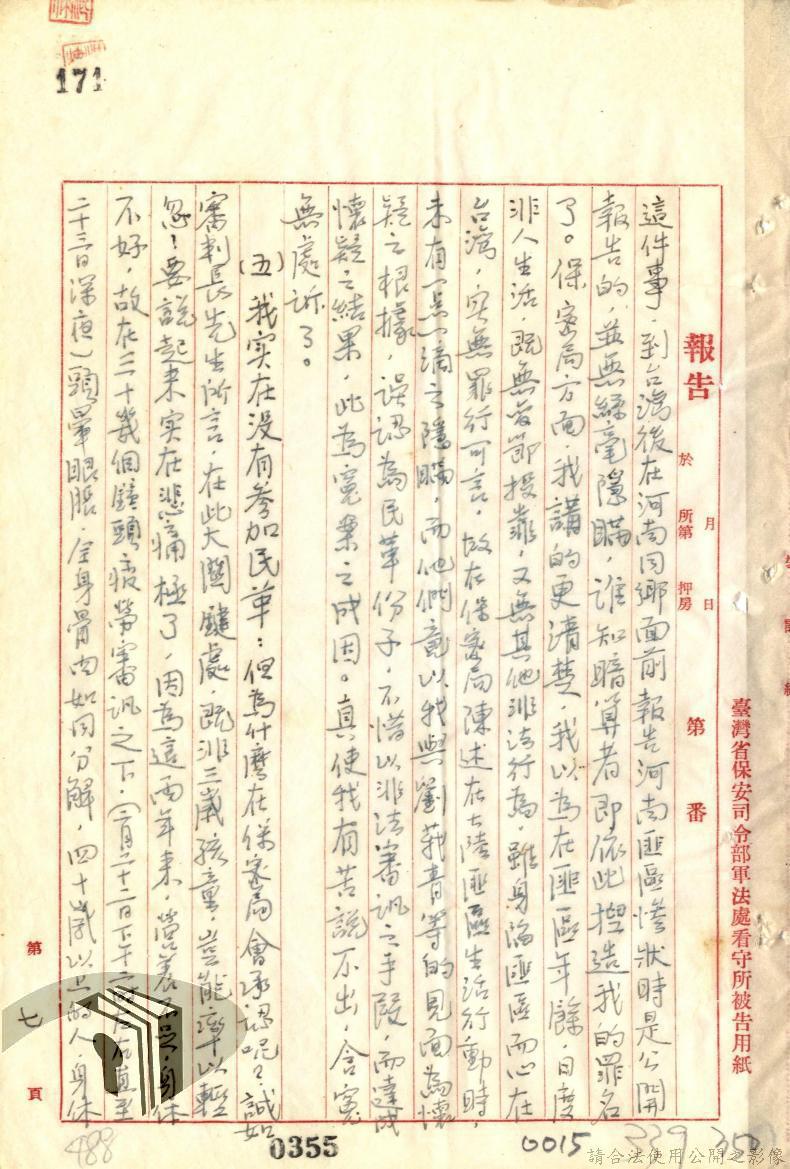 171
臺灣省保安司令部軍法處看守所被告用紙
報告
於
月
日
所第
押房
第
番
這件事，到台灣後在河南同鄉面前報告河南匪區慘狀時是公開
報告的，並無絲毫隱瞞，誰知暗算者即依此揑造我的罪名
了。保密局方面，我講的更清楚，我以為在匪區年餘，日度
非人生活，既無變節投靠，又無其他非法行為，雖身陷匪區而心在
台灣，实無罪行可言，故在保密局陳述在大陸匪區生活行動時，
未有一点一滴之隱瞞，而他們竟以我與劉莪青等的見面為懷
疑之根據，误認為民革份子，不惜以非法審訊之手段，而達成
懷疑之結果，此為冤案之成因。真使我有苦說不出，含冤
無處訴了。
(五)我实在没有參加民革：但為什麽在保密局會承認呢？誠如
審判長先生所言，在此大關鍵處，既非三歲孩童，岂能率以輕
忽！要說起来实在悲痛極了，因為這兩年来，營养不足，身体
不好，故在三十幾個鐘頭疲勞審訊之下，(二月二十二日下午二時左右直至
二十三日深夜)頭暈眼脹，全身骨肉如同分解，四十歲以上的人，身体
第
七
頁
488
0355
0015
339
350
請合法使用公開之影像